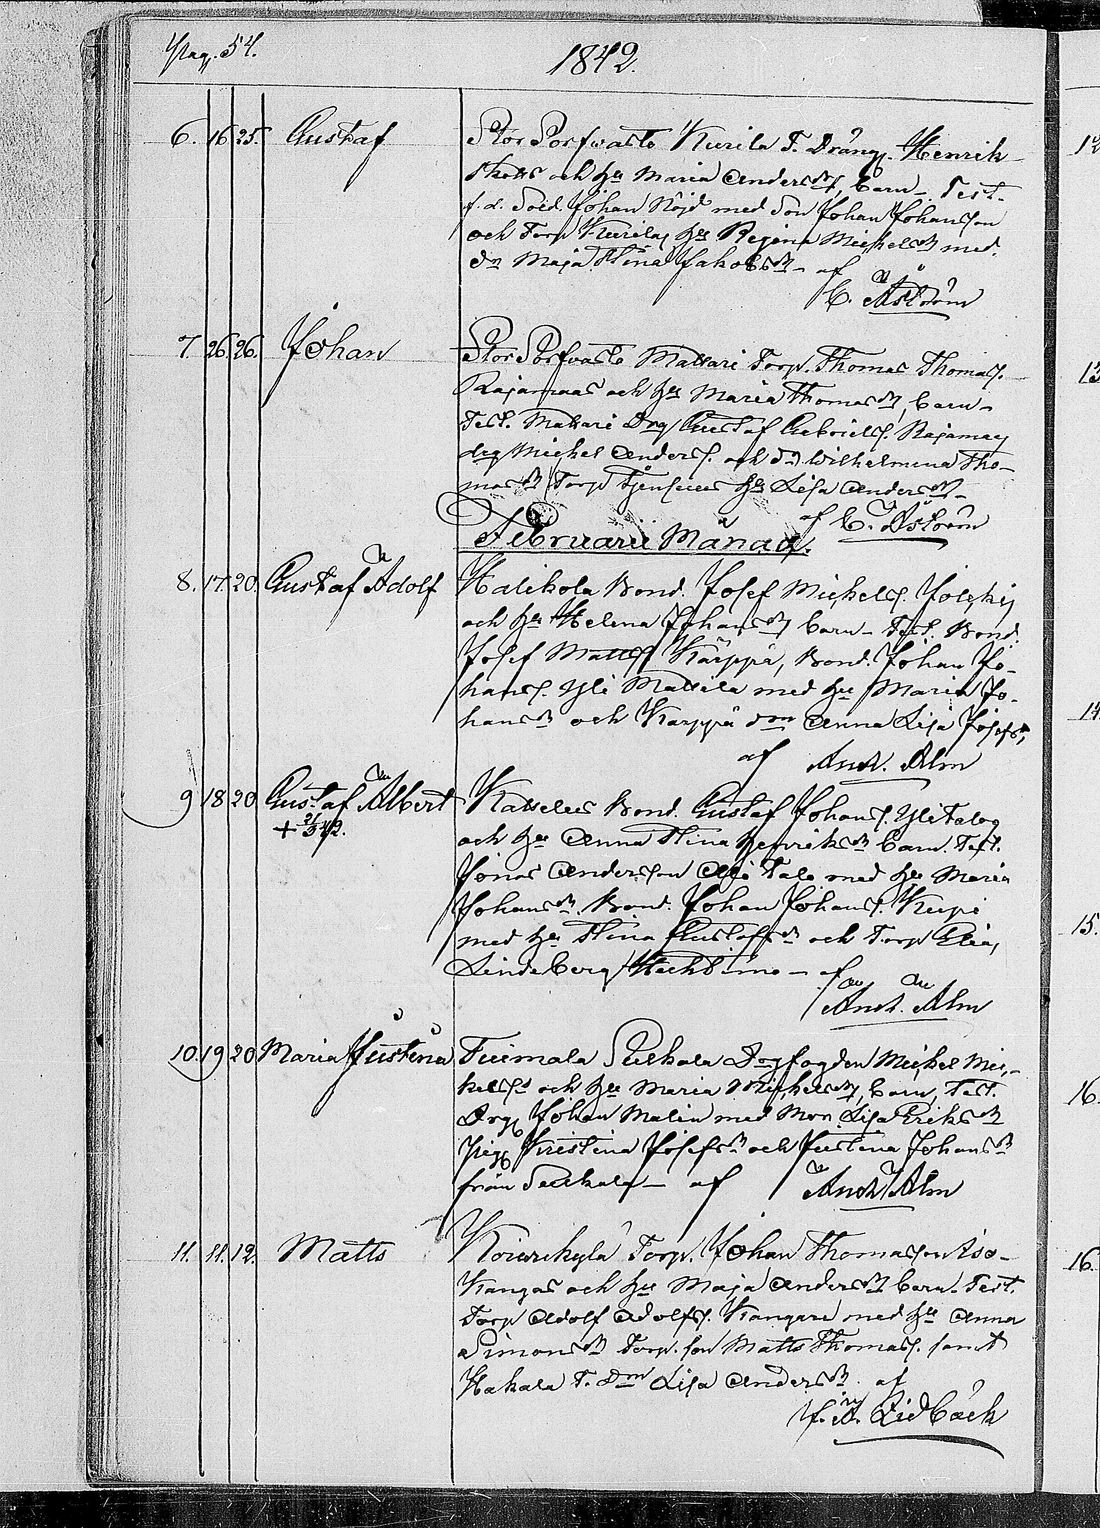 Pag. 54.
1842.
6. 16 25. Gustaf
Stor Porfwasto Kurila T. Dräng. Henrik
och hu Maria Andersdr, barn. Test.
f. d. Sold. Johan Nöjd med Son Johan Johansson
och Torp Kurilas hu Regina Michelsdr med
dr Maja Stina Jakobsdr af
C. Åström
7 26. 26. Johan
Stor Porfwasto Mattari Torp. Thomas Thomas.
Rajamaa och hu Maria Thomasdr, barn
Test. Mattari Drg Gustaf Gabriels. Rajamaa
drg Michel Anders. och dr Wilhelmina Tho-
masdr Torp hu Lisa Andersdr
af C. Åström
Februarii Månad.
8. 17. 20. Gustaf Adolf
Halikola Bond. Josef Michels.
och hu Helena Johansdr barn Test. Bond.
Josef Matts Käppä, Bond. Johan Jo-
hans. Yli Mattila med hu Maria Jo-
hansdr och Käppä dm Anna Lisa Josefs,
af And. Alm
9 18. 20 Gustaf Albert
+ 21/3 42.
Bond. Gustaf Johans. Ylitalo
och hu Anna Stina Henriksdr barn. Test.
Jonas Andersson Ali Talo med hu Maria
Johansdr. Bond. Johan Johans. Kupi
med hu Stina Gustafsdr och Torp Elias
Lindeberg af
And. Alm
10. 19 20 Maria Justina
Tuimala Sukala Drgfogden Michel Mic-
kelss och hu Maria Michelsdr, barn, Test.
Drg Johan Malin med Mor Lisa Eriksdr
Pig Kristina Josefsdr och Justina Johansdr
från Sukala af And. Alm
11. 11. 12. Matts
Koiwikylä Torp. Johan Thomasson Iso-
Kangas och hu Maja Andersdr barn. Test.
Torp Adolf Adolfs. Kangare med hu Anna
Simonsdr Torp. son Matts Thomas. samt
Hakala T. dm Lisa Andersdr. af
Lidbäck
12
13
14
15.
16.
16.